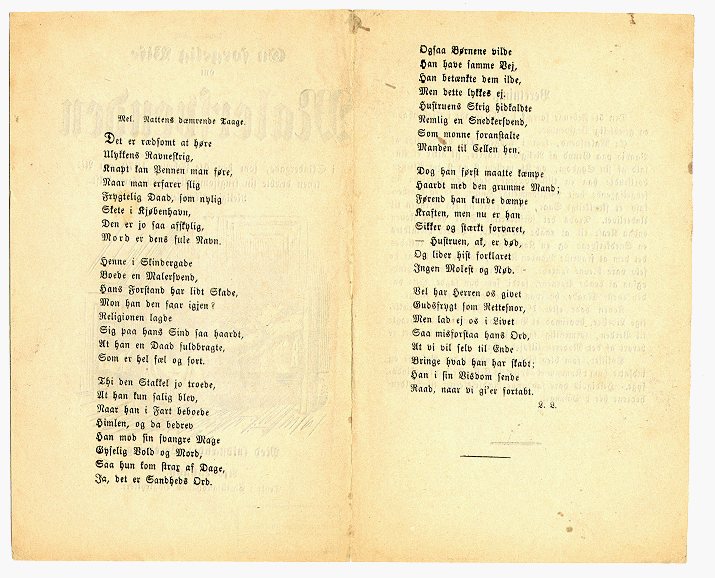 Mel. Nattens dæmrende Taage.
Det er rædsomt at høre
Ulykkens Ravneskrig,
Knapt kan Pennen man føre,
Naar man erfarer slig
Frygtelig Daad, som nylig
Skete i Kjøbenhavn,
Den er jo saa afskylig,
Mord er dens fule Navn.
Henne i Skindergade
Boede en Malersvend,
Hans Forstand har lidt Skade,
Mon han den faar igjen?
Religionen lagde
Sig paa hans Sind saa haardt,
At han en Daad fuldbragte,
Som er hel fæl og sort.
Thi den Stakkel jo troede,
At han kun salig blev,
Naar han i Fart beboede
Himlen, og da bedrev
Han mod sin svangre Mage
Gyselig Vold og Mord,
Saa hun kom strax af Dage,
Ja, det er Sandheds Ord.
Ogsaa Børnene vilde
Han have samme Vej,
Han betænkte dem ilde,
Men dette lykkes ej.
Hustruens Skrig hidkaldte
Nemlig en Snedkersvend,
Som monne foranstalte
Manden til Cellen hen.
Dog han først maatte kæmpe
Haardt med den grumme Mand;
Førend han kunde dæmpe
Kraften, men nu er han
Sikker og stærkt forvaret,
— Hustruen, ak, er død,
Og lider hist forklaret
Ingen Molest og Nød.
Vel har Herren os givet
Gudsfrygt som Rettesnor,
Men lad ej os i Livet
Saa misforstaa hans Ord,
At vi vil selv til Ende
Bringe hvad han har skabt;
Han i sin Visdom sende
Raad, naar vi gi'er fortabt.
L. L.